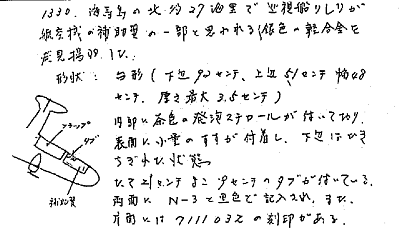 1330. 海馬島の北 約27浬で 巡視船りしりが
航空機の補助翼の一部と思われる(銀色の軽合金を
発見揚収した。
形状: 台形(下辺92センチ、上辺51センチ 幅48
センチ、厚さ最大3.5センチ)
内部に茶色の発泡スチロールが付いており、
表面に少量のすすが付着し、下辺はひき
ちぎれた状態
たて21センチ よこ9センチのタブが付いている。
両面に N-3と黒色で記入され、また、
片面には7111032の刻印がある。
フラップ
タブ
補助翼